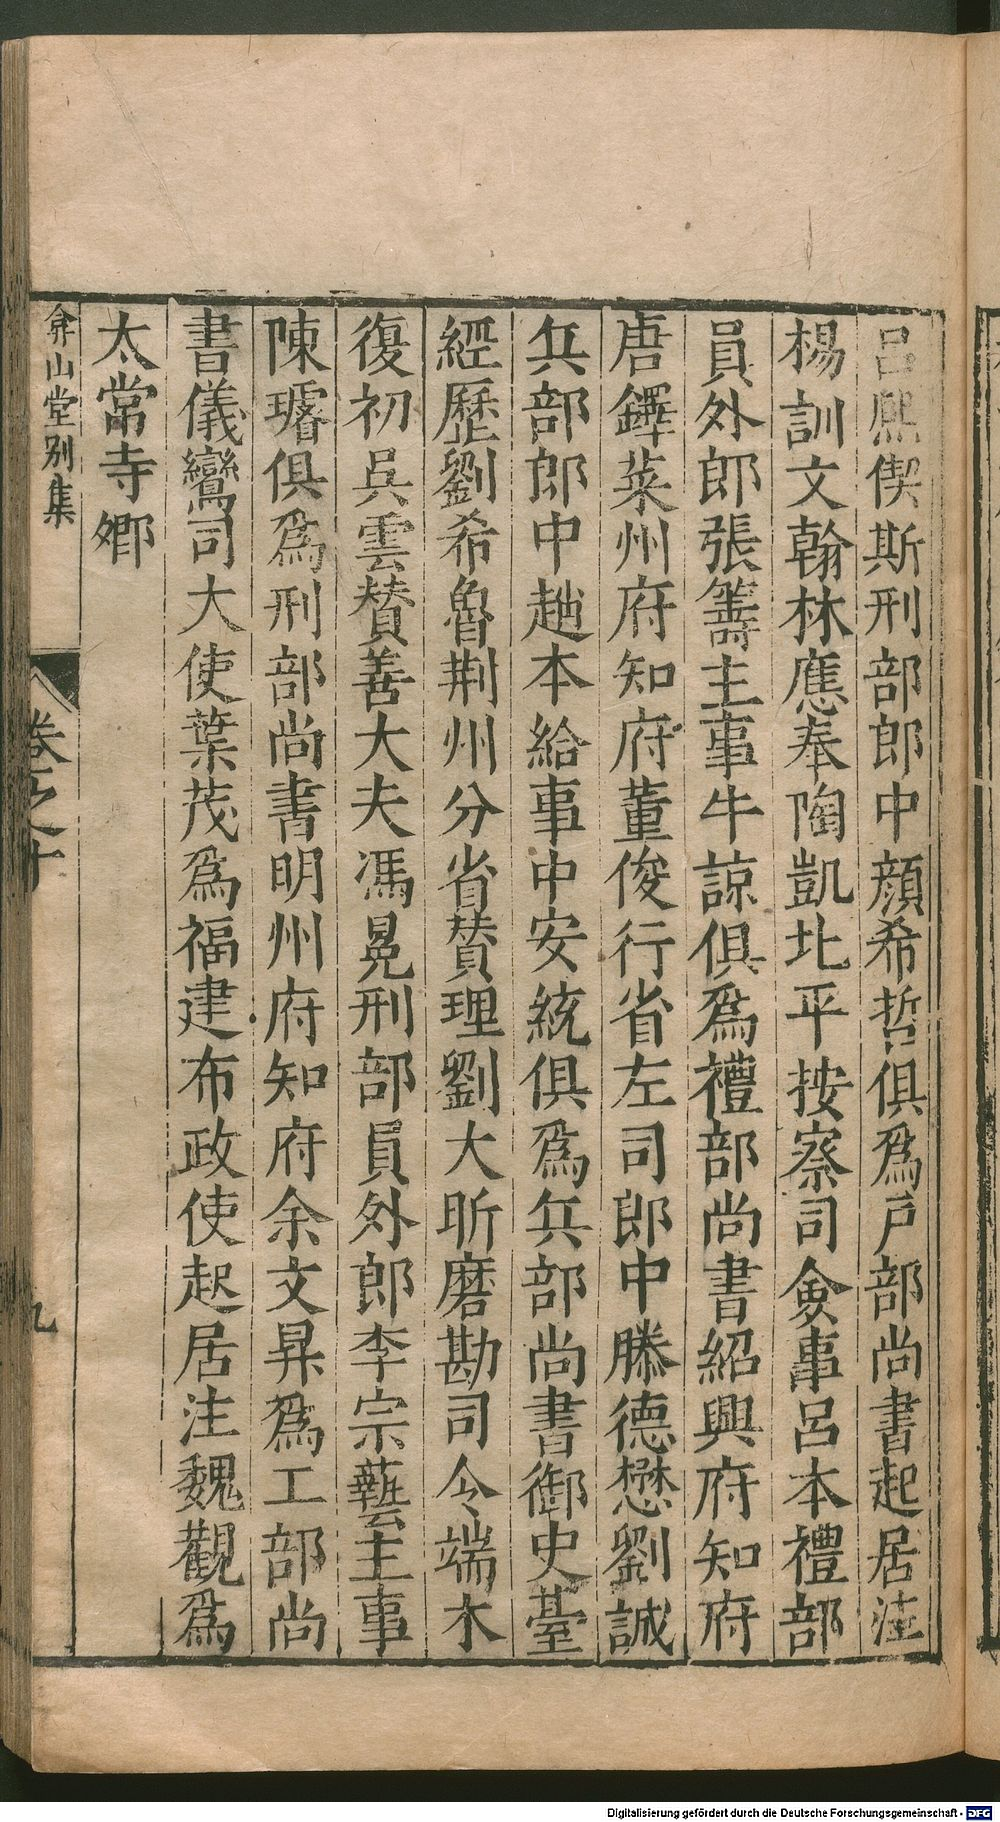 呂熈偰斯刑部郎中顔希哲俱爲戸部尚書起居注
楊訓文翰林應奉陶凱北平按察司僉事呂本禮部
員外郎張籌主事牛諒俱爲禮部尚書紹興府知府
唐鐸萊州府知府董俊行省左司郎中滕德懋劉誠
兵部郎中趙本給事中安統俱爲兵部尚書御史臺
經歷劉希魯荆州分省賛理劉大昕磨勘司令端木
復初吳雲賛善大夫馮冕刑部員外郎李宗藝主事
陳璿俱爲刑部尚書明州府知府余文昇爲工部尚
書儀鸞司大使葉茂爲福建布政使起居注魏觀爲
太常寺鄉
弇山堂别集
卷之十
九
Digitalisierung gefördert durch die Deutsche Forschungsgemeinschaft - DFG